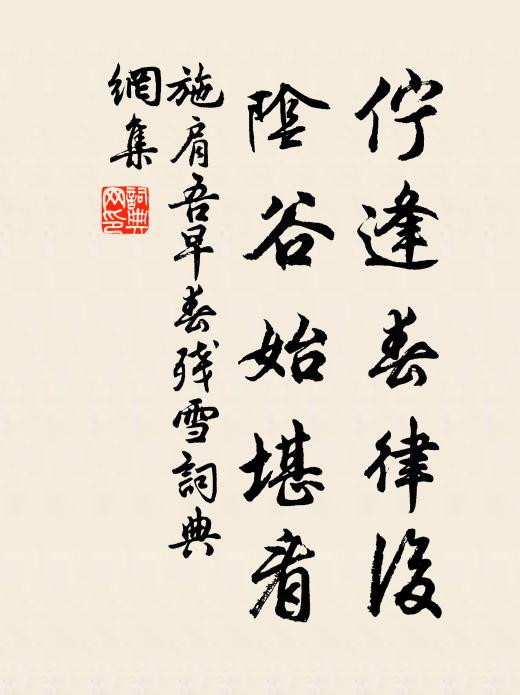 佇逢春律後
陰谷始堪看
施肩吾早春殘雪詞典
網集
詞典
網印